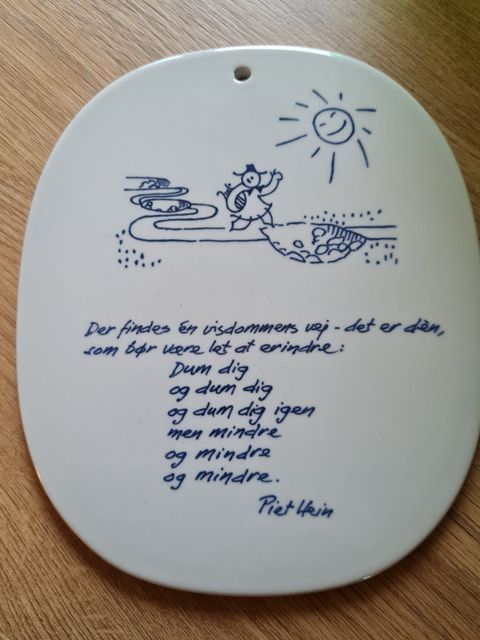 Der findes én visdommens vej - det er dén,
som bør være let at erindre:
Dum dig
og dum dig
og dum dig igen
men mindre
og mindre
og mindre.
Piet Hein